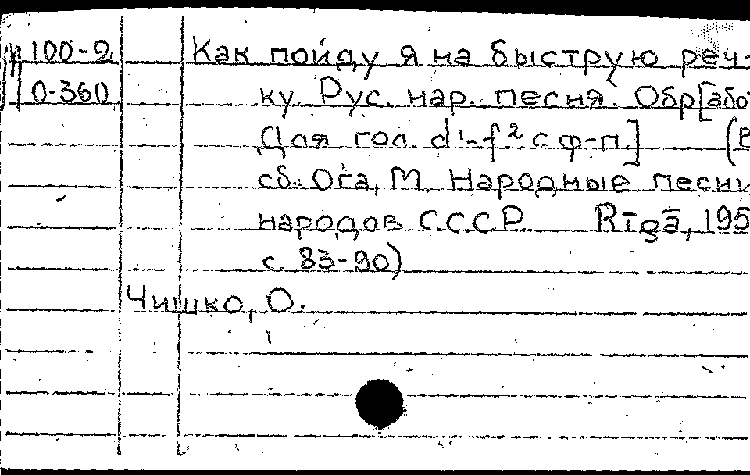 М 100-2 Как пойду я на быструю реч-
0-360 ку. Рус. нар. песня. Обр[або
Для гол. d¹-f² с ф-п.] (В
сб.: Ога, М. Народные песни
народов С.С.С.Р. Rīgā, 195
с. 83-90)
Чишко, О.